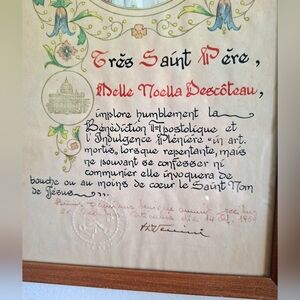 Très Saint Père,
Melle Noella Descôteau,
implore humblement la
Bénédiction Apostolique et
l'Indulgence Plénière "in art.
mortis, lorsque repentante, mais
ne pouvant se confesser ni
communier elle invoquera de
bouche ou au moins de cœur le Saint Nom
de Jesus